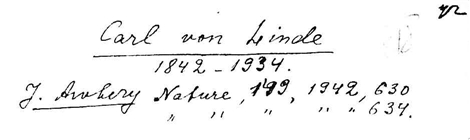 Carl von Linde
1842-1934.
J. Awbery Nature, 149, 1942, 630
" " " " 634.